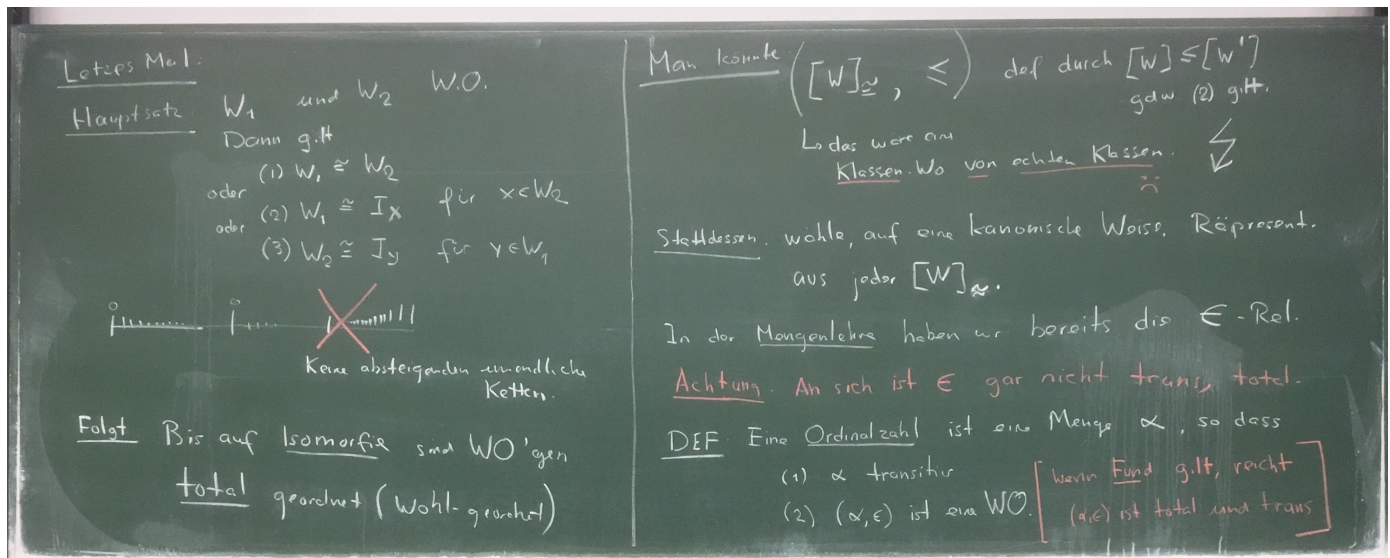 Letzes Mal.
Hauptsatz W₁ und W₂ W.O.
Dann gilt
(1) W₁ ≅ W₂
oder
(2) W₁ ≅ Iₓ für x∈W₂
oder
(3) W₂ ≅ I_y für y∈W₁
Keine absteigenden unendliche
Ketten.
Folgt Bis auf Isomorfie sind WO'gen
total geordnet (Wohl-geordnet)
Man könnte ([W]_≅, ≤) def durch [W] ≤ [W']
gdw (2) gilt.
↳ das were eine
Klassen-Wo von echten Klassen.
Stattdessen. wähle, auf eine kanonische Weise, Räpresent.
aus jeder [W]_≅.
In der Mengenlehre haben wir bereits die ∈-Rel.
Achtung. An sich ist ∈ gar nicht trans, total.
DEF Eine Ordinalzahl ist eine Menge α, so dass
(1) α transitiv
(2) (α,∈) ist eine WO.
[wenn Fund gilt, reicht
(α,∈) ist total und trans]